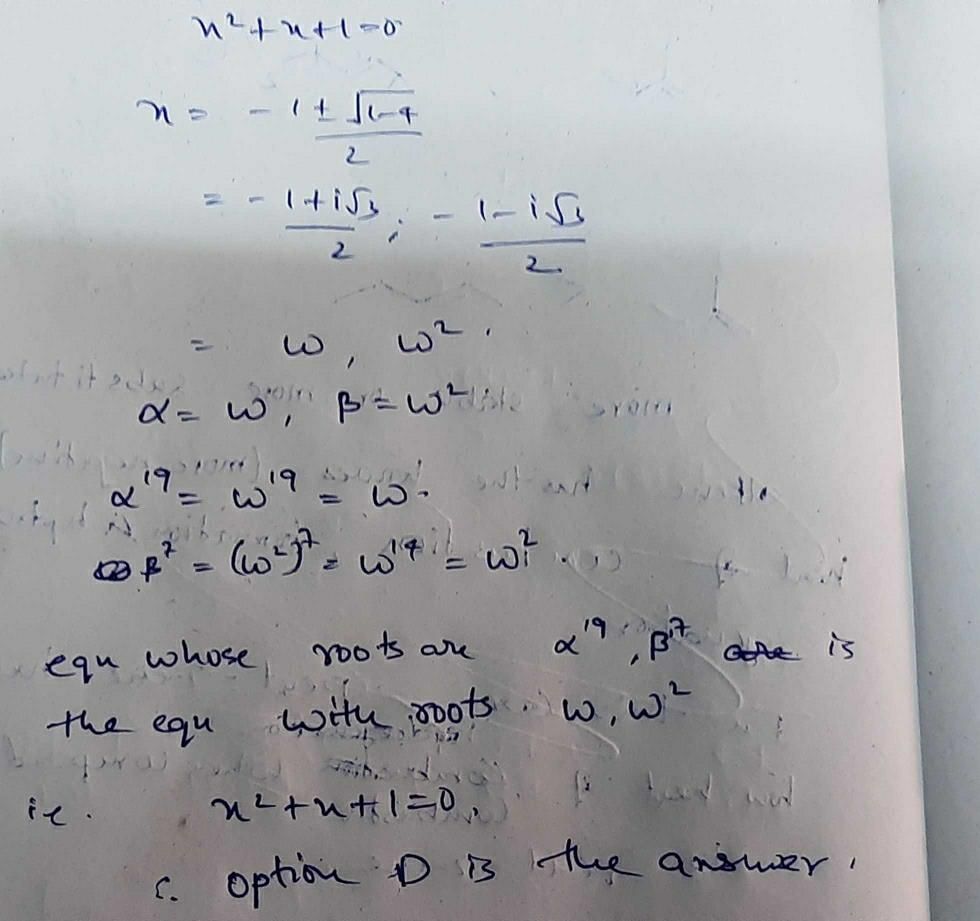 x²+x+1=0
x = -1 ± √1-4 / 2
= -1+i√3 / 2 ; -1-i√3 / 2
= ω, ω².
α = ω, β = ω²
α¹⁹ = ω¹⁹ = ω.
β⁷ = (ω²)⁷ = ω¹⁴ = ω².
equ whose roots are α¹⁹, β⁷ is
the equ with roots ω, ω²
ie. x²+x+1=0,
∴ option D is the answer.